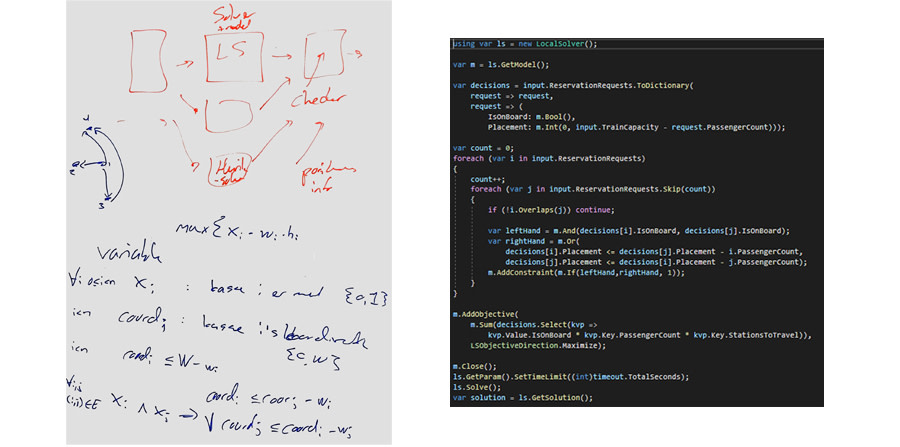 Solver
+ model
LS
checker
-solver
4
2
3
max { xi · wi · hi
variable
xi : kasse i er med {0,1}
coordi : kasse i's koordinat
{0,W}
coordi ≤ W - wi
xi ∧ xj → coordi ≤ coorj - wi
∨ coordj ≤ coordi - wj
using var ls = new LocalSolver();
var m = ls.GetModel();
var decisions = input.ReservationRequests.ToDictionary(
request => request,
request => (
IsOnBoard: m.Bool(),
Placement: m.Int(0, input.TrainCapacity - request.PassengerCount)));
var count = 0;
foreach (var i in input.ReservationRequests)
{
count++;
foreach (var j in input.ReservationRequests.Skip(count))
{
if (!i.Overlaps(j)) continue;
var leftHand = m.And(decisions[i].IsOnBoard, decisions[j].IsOnBoard);
var rightHand = m.Or(
decisions[i].Placement <= decisions[j].Placement - i.PassengerCount,
decisions[j].Placement <= decisions[i].Placement - j.PassengerCount);
m.AddConstraint(m.If(leftHand,rightHand, 1));
}
}
m.AddObjective(
m.Sum(decisions.Select(kvp =>
kvp.Value.IsOnBoard * kvp.Key.PassengerCount * kvp.Key.StationsToTravel)),
LSObjectiveDirection.Maximize);
m.Close();
ls.GetParam().SetTimeLimit((int)timeout.TotalSeconds);
ls.Solve();
var solution = ls.GetSolution();